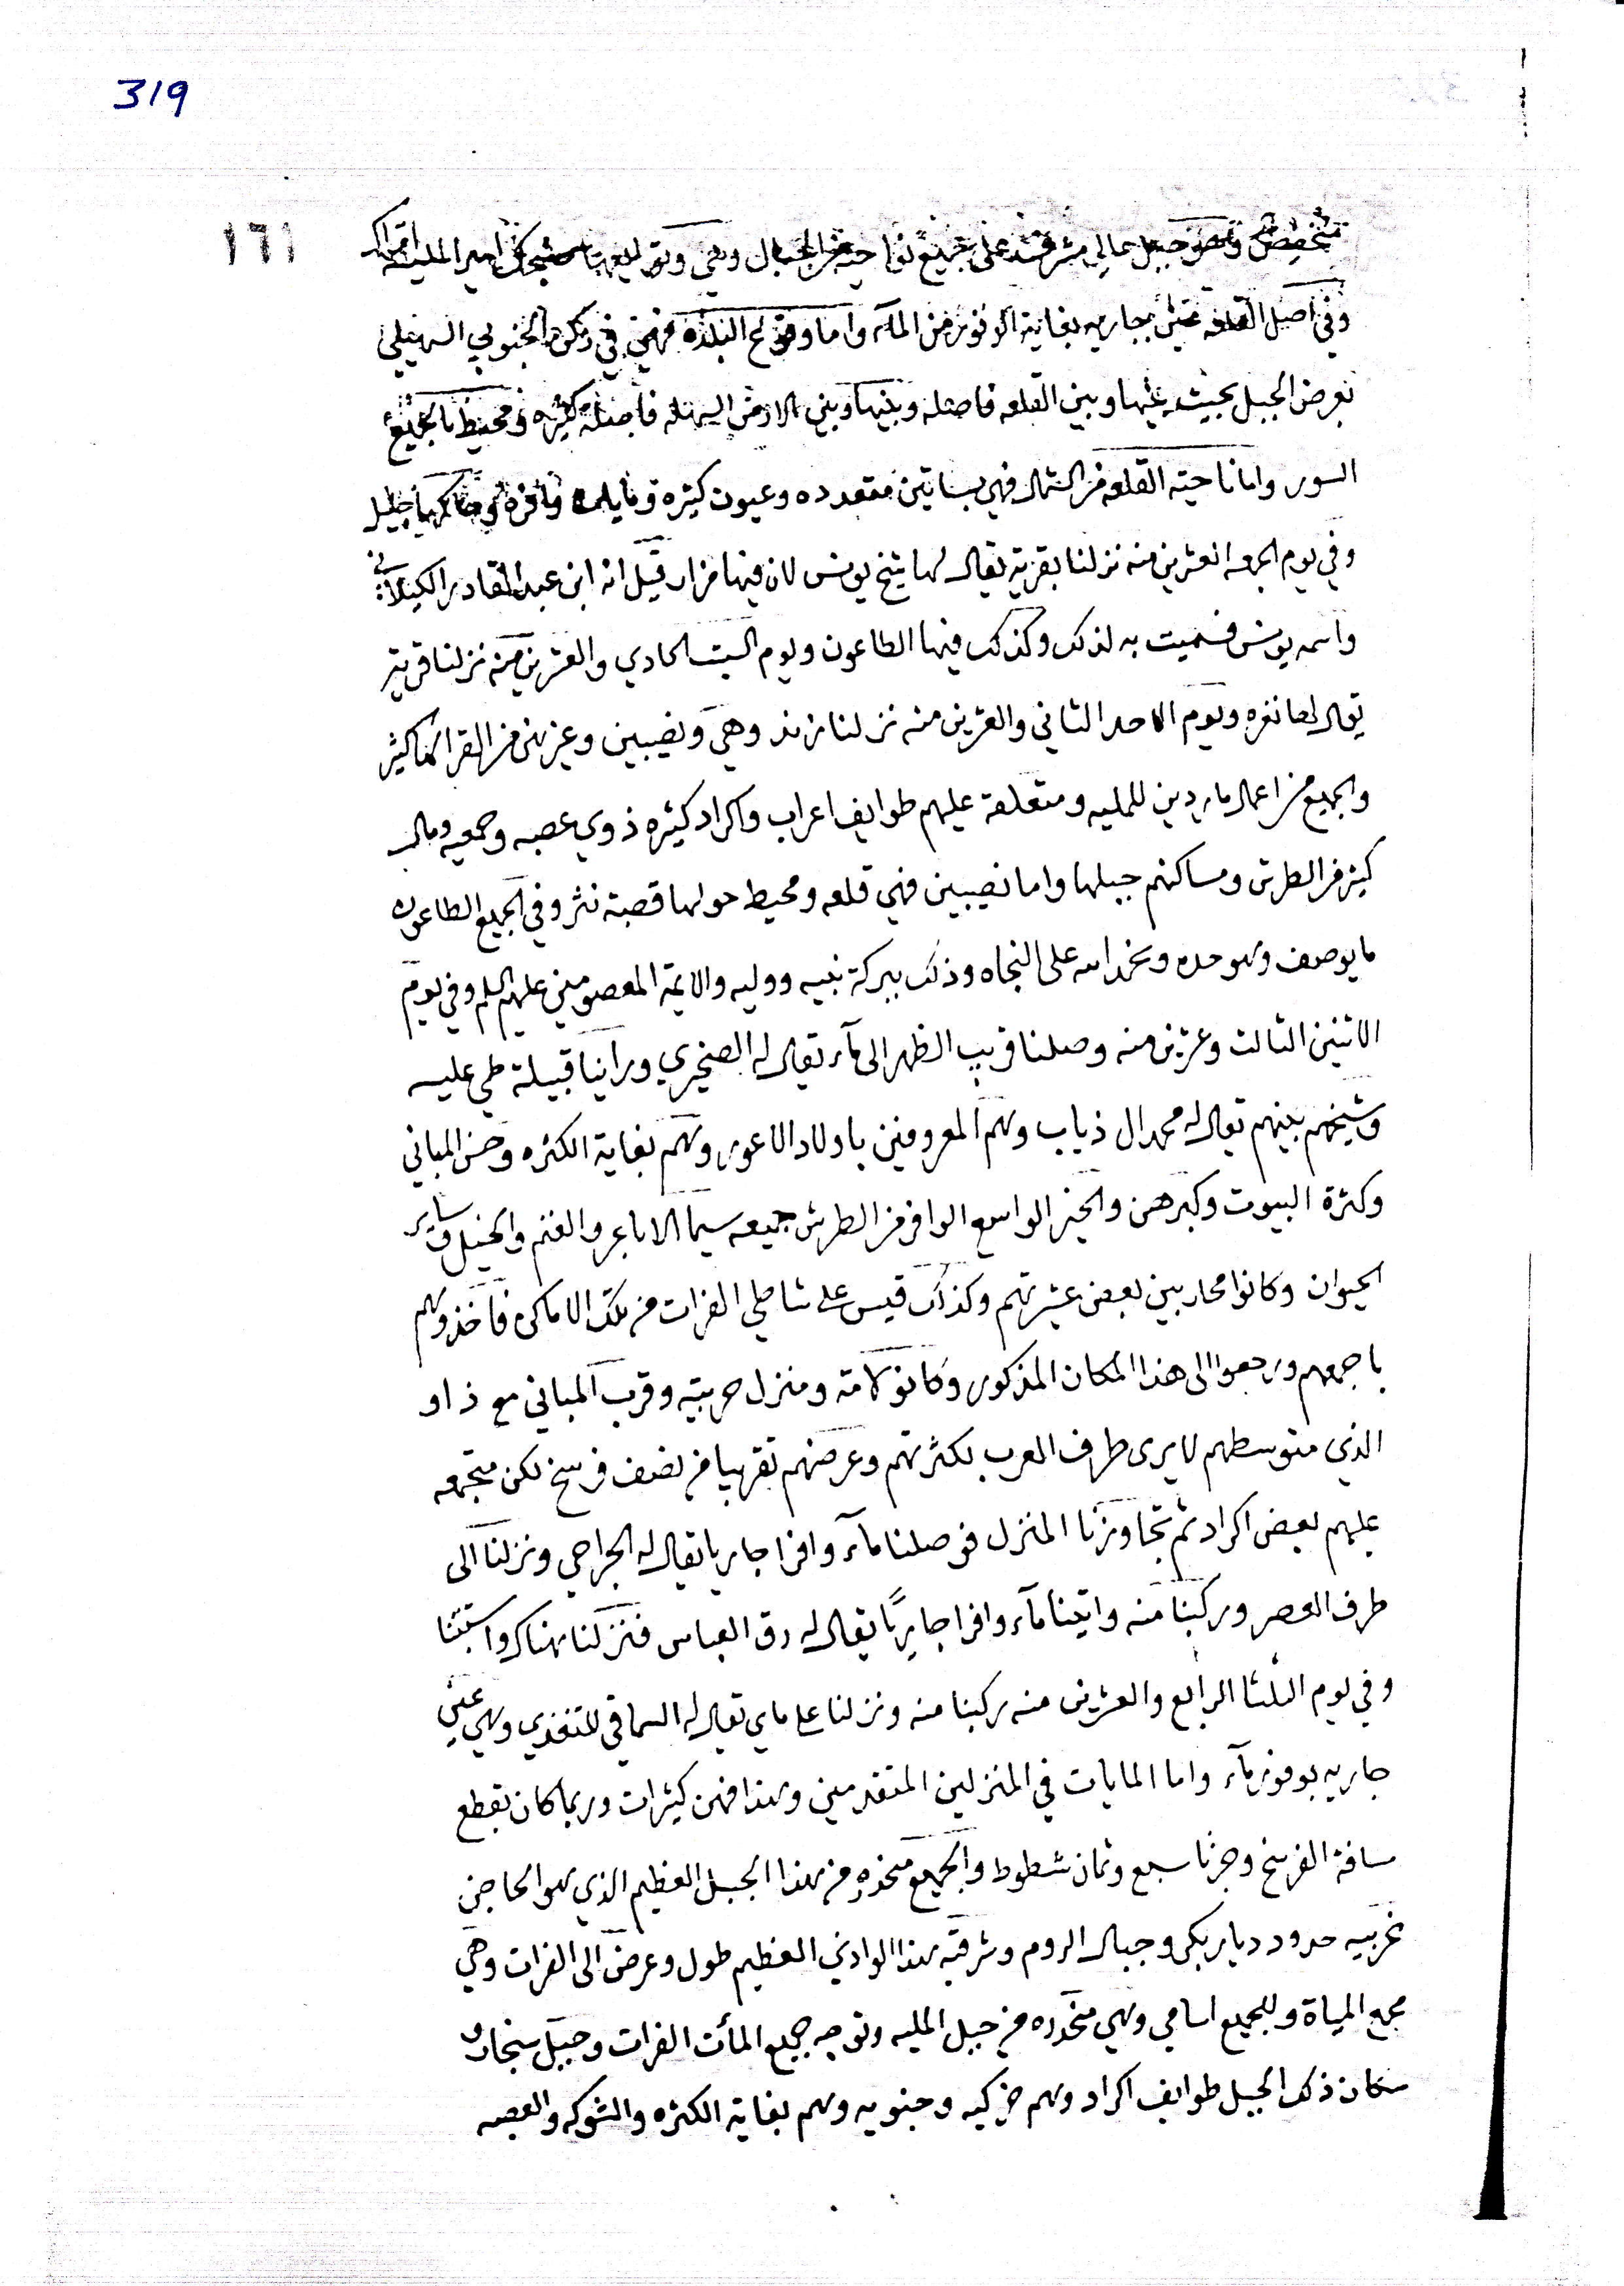 319
١٦١
وهو جبل عالي مشرفة على جميع نواحيه من الجبال وهي امير المليه
وفي اصل القلعه عين جاريه بغاية الوفور من المآء واما وقوع البلده فهي في ركن الجنوبي السهيلي
بعرض الجبل بحيث بينها وبين القلعه فاصله وبينها وبين الارض السهله فاصله كثيره ومحيط بالجميع
السور واما ناحية القلعه من الشمال فهي بساتين متعدده وعيون كثيره ومايات وافره وحاكمها جليل
وفي يوم الجمعه العشرين منه نزلنا بقرية يقال لها شيخ يونس لان فيها مزار قيل انه ابن عبد القادر الكيلاني
واسمه يونس فسميت به لذلك وكذلك فيها الطاعون ويوم السبت الحادي والعشرين منه نزلنا قرية
يقال لها نغره ويوم الاحد الثاني والعشرين منه نزلنا نزند وهي ونصيبين وغيرهن من القرا كما كثير
والجميع من اعمال ماردين للمليه ومتعلقة عليهم طوايف اعراب واكراد كثيره ذوي عصبه وجمعيه ومال
كثير من الطرش ومساكنهم جبلها واما نصيبين فهي قلعه ومحيط حولها قصبة نثر وفي الجميع الطاعون
ما يوصف وهو حده ونحمد الله على النجاه وذلك ببركة نبيه ووليه والايمة المعصومين عليهم السلم وفي يوم
الاثنين الثالث وعشرين منه وصلنا قريب الظهر الى مآء يقال له الصخيري وراينا قبيلة طي عليه
وشيخهم بينهم يقال له محمد ال ذياب وهم المعروفين باولاد الاعور وهم بغاية الكثره وحسن المباني
وكثرة البيوت وكبرهن والخير الواسع الوافر من الطرش جميعه سيما الاباعر والغنم والخيل وساير
الحيوان وكانوا محاربين بعض عشيرتهم وكذلك قيس على شاطي الفرات من تلك الاماكن فاخذوهم
باجمعهم ورجعوا الى هذا المكان المذكور وكانو لامة ومنزل حربية وقرب المباني مع ذا و
الذي متوسطهم لا يرى طرف العرب لكثرتهم وعرضهم تقريبا من نصف فرسخ لكن مجتمعه
عليهم بعض اكراد ثم تجاوزنا المنزل فوصلنا مآء وافرا جاريا يقال له الجراحي ونزلنا الى
طرف العصر وركبنا منه واتينا مآء وافرا جاريًا يقال له رق العباس فنزلنا هناك واستبتنا
وفي يوم الثلثا الرابع والعشرين منه ركبنا منه ونزلنا على ماي يقال له السماقي للتغدي وهي عين
جاريه بوفور مآء واما المايات في المنزلين المتقدمين وهذا فهن كثيرات وربما كان بقطع
مسافة الفرسخ وجزنا سبع وثمان شطوط والجميع منحدره من هذا الجبل العظيم الذي هو الحاجز
غربيه حدود ديار بكر وجبال الروم وشرقيه هذا الوادي العظيم طول وعرض الى الفرات وهي
مجمع المياة وللجميع اسامي وهي منحدره من جبل المليه وتوجه جميع المآت الفرات وجبل سنجار و
سكان ذلك الجبل طوايف اكراد وهم خركيه وجنويه وهم بغاية الكثره والشوكه والعصبه